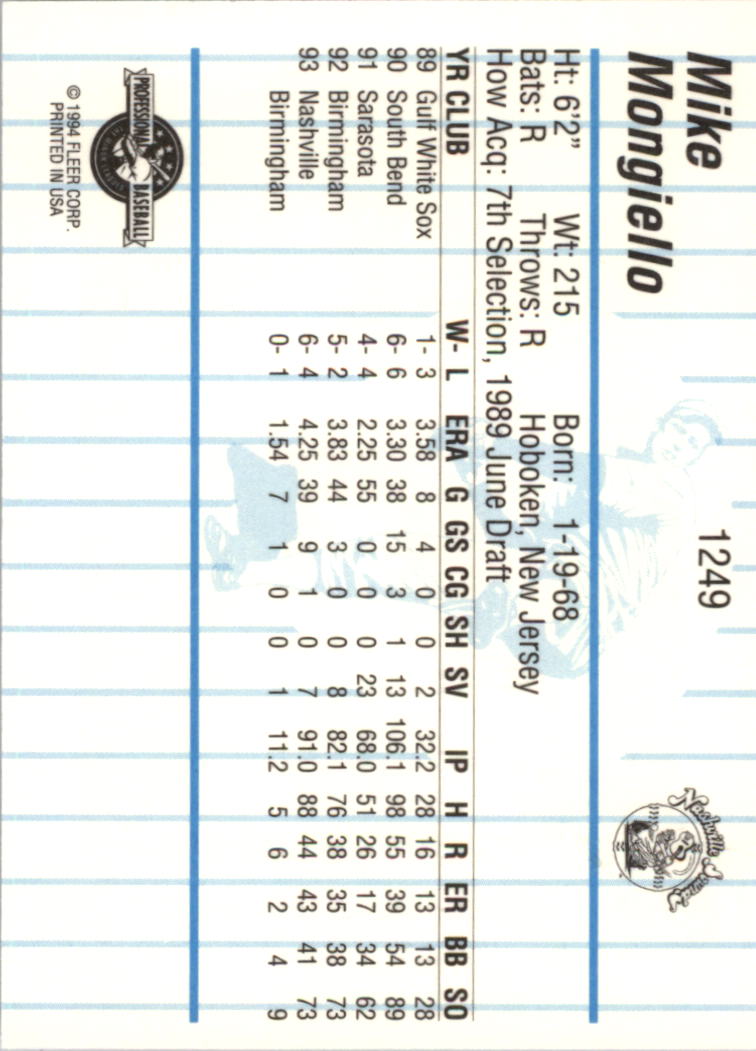 Mike
Mongiello
1249
Nashville Sounds
Ht: 6'2" Wt: 215 Born: 1-19-68
Bats: R Throws: R Hoboken, New Jersey
How Acq: 7th Selection, 1989 June Draft
YR CLUB W- L ERA G GS CG SH SV IP H R ER BB SO
89 Gulf White Sox 1- 3 3.58 8 4 0 0 2 32.2 28 16 13 13 28
90 South Bend 6- 6 3.30 38 15 3 1 13 106.1 98 55 39 54 89
91 Sarasota 4- 4 2.25 55 0 0 0 23 68.0 51 26 17 34 62
92 Birmingham 5- 2 3.83 44 3 0 0 8 82.1 76 38 35 38 73
93 Nashville 6- 4 4.25 39 9 1 0 7 91.0 88 44 43 41 73
Birmingham 0- 1 1.54 7 1 0 0 1 11.2 5 6 2 4 9
PROFESSIONAL BASEBALL
© 1994 FLEER CORP.
PRINTED IN USA